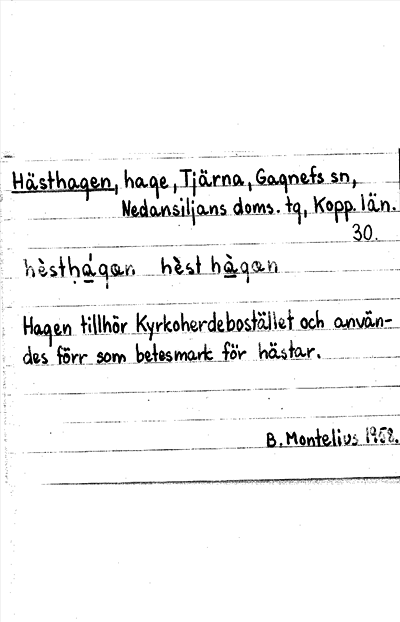 Hästhagen, hage, Tjärna, Gagnefs sn,
Nedansiljans doms. tg, Kopp. län.
30.
hèstḥágan hèst hàgan
Hagen tillhör Kyrkoherdebostället och använ-
des förr som betesmark för hästar.
B. Montelius